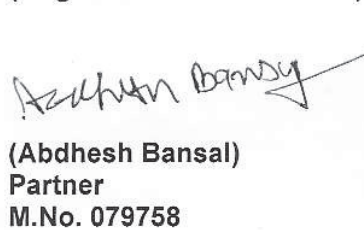 (Abdhesh Bansal)
Partner
M.No. 079758